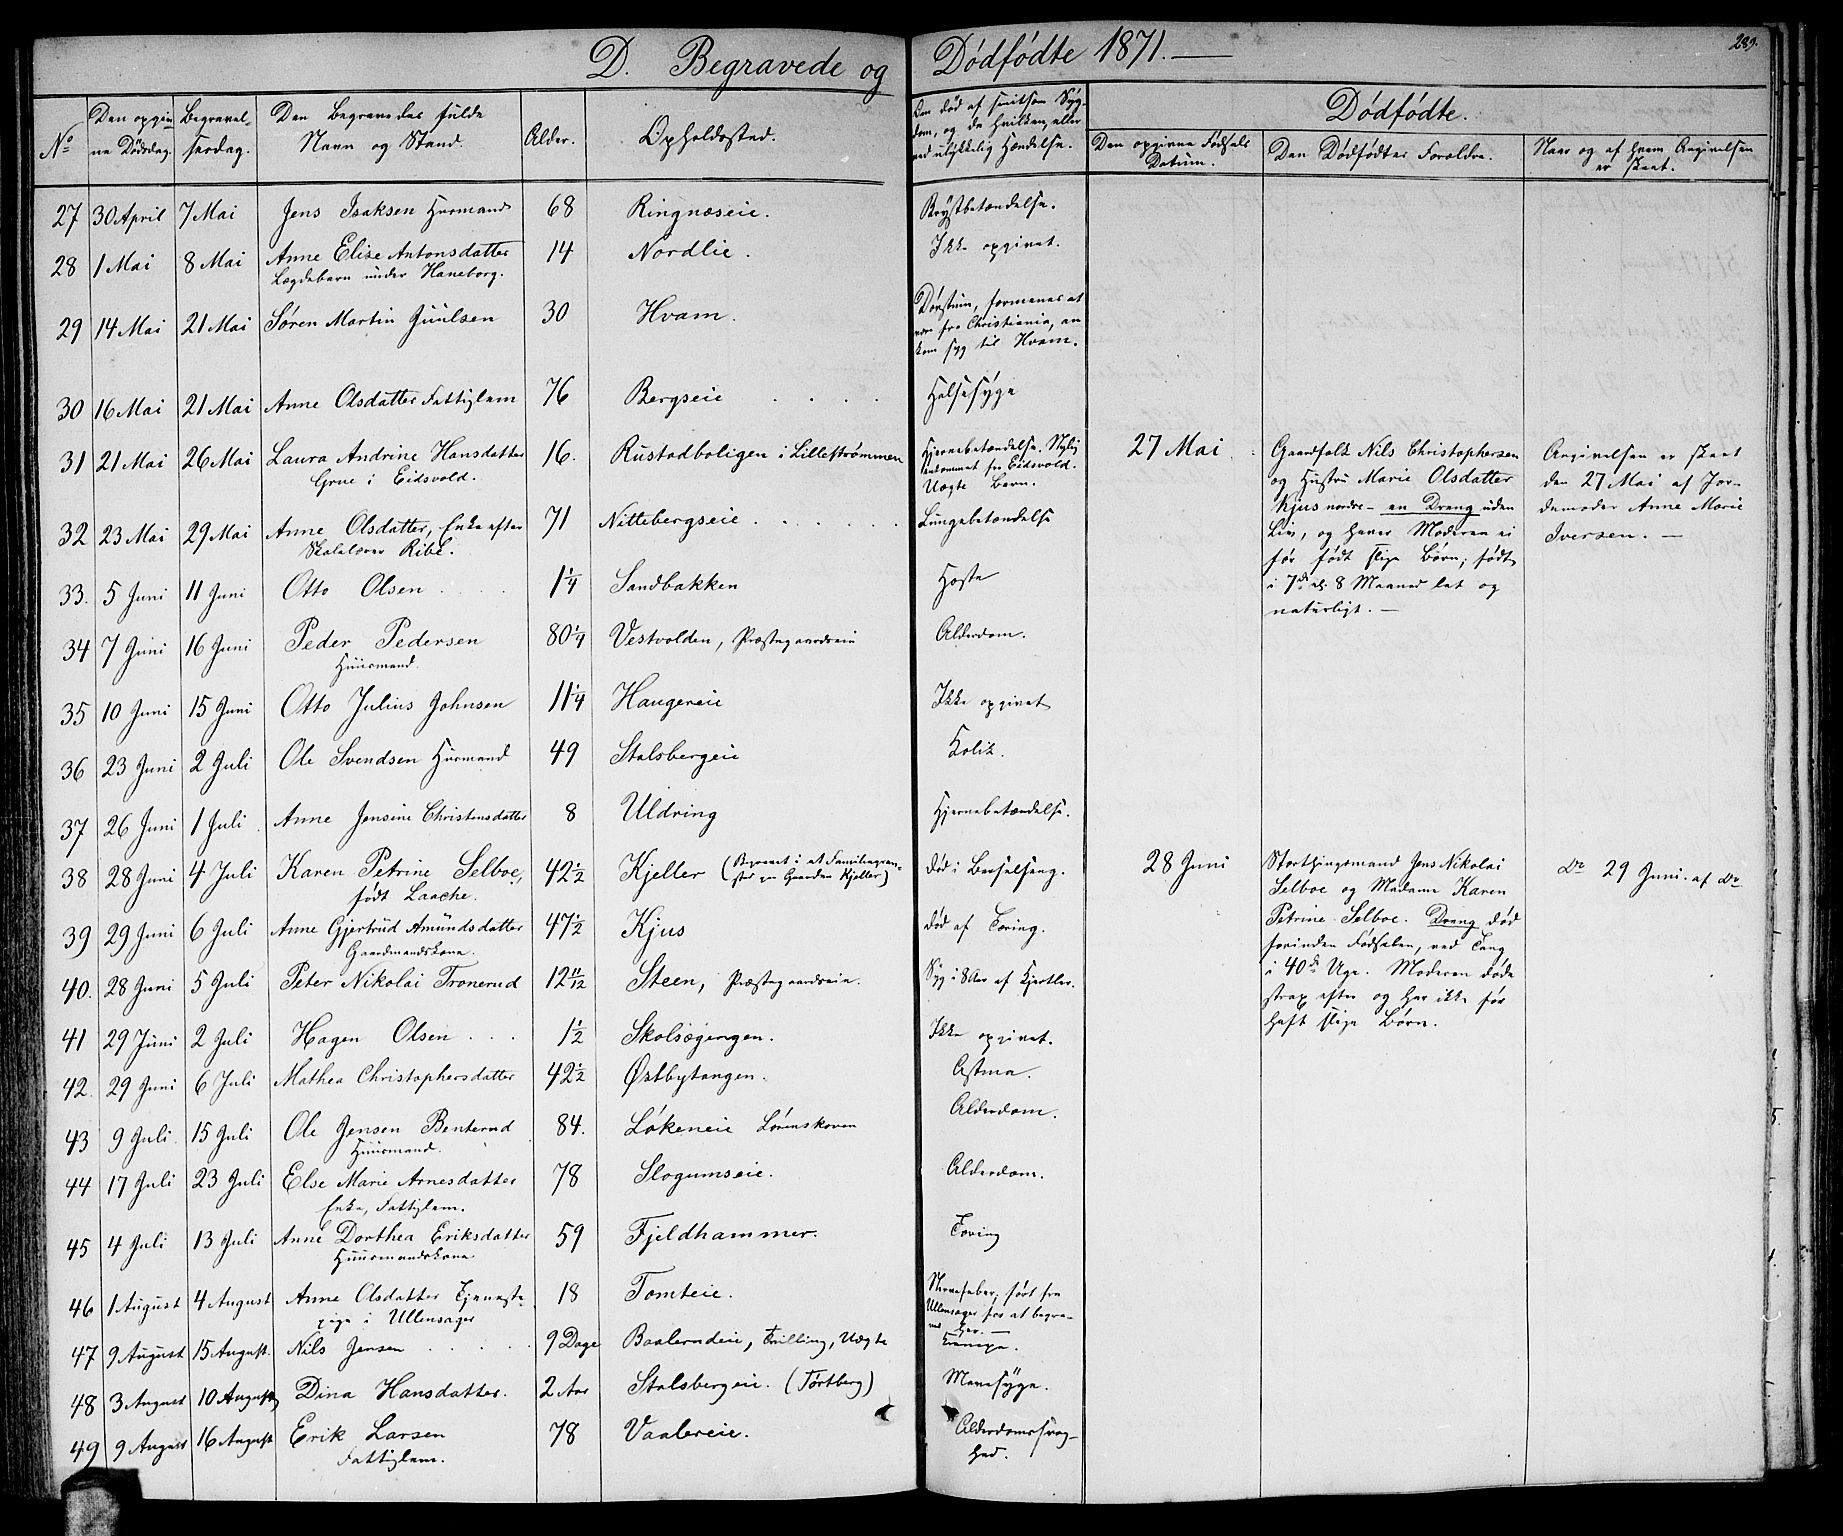 289.
D. Begravede og Dødfødte 1871.
No
Den opgivne Dødsdag.
Begravelsesdag.
Den Begravedes fulde Navn og Stand.
Alder.
Opholdssted.
Om død af smitsom Sygdom, og da hvilken, eller ved ulykkelig Hændelse.
Dødfødte.
Den opgivne Fødsels Datum.
Den Dødfødtes Forældre.
Naar og af hvem Angivelsen er skeet.
27 30 April 7 Mai Jens Isaksen Husmand 68 Ringnæseie. Brystbetændelse.
28 1 Mai 8 Mai Anne Elise Antonsdatter 14 Nordlie. Ikke opgivet.
Lægdebarn under Haneborg.
29 14 Mai 21 Mai Søren Martin Juulsen 30 Hvam. formenes at
være fra Christiania, an
kom syg til Hvam.
30 16 Mai 21 Mai Anne Olsdatter Fattiglem 76 Bergseie . . . . Halsesyge
31 21 Mai 26 Mai Laura Andrine Hansdatter 16. Rustadboligen i Lillestrømmen Hjernebetændelse. Nylig
Grue i Eidsvold. ankommet fra Eidsvold.
Uægte Barn.
27 Mai
Gaardfolk Nils Christophersen
og Hustru Marie Olsdatter
Kjus nordre - en Dreng uden
Liv, og haver Moderen ei
før født slige Børn; født
i 7de al. 8 Maaned let og
naturligt. -
Angivelsen er skeet
den 27 Mai af Jor-
demoder Anne Marie
Iversen. -
32 23 Mai 29 Mai Anne Olsdatter, Enke efter 71 Nittebergseie . . . . . . Lungebetændelse
Skolelærer Ribe.
33. 5 Juni 11 Juni Otto Olsen . . . . 1 1/4 Sandbakken Hoste
34 7 Juni 16 Juni Peder Pedersen 80 1/4 Vestvolden, Præstegaardseie Alderdom.
Huusmand.
35 10 Juni 15 Juni Otto Julius Johnsen 11 1/4 Haugereie Ikke opgivet
36 23 Juni 2 Juli Ole Svendsen Husmand 49 Stalsbergeie Kolik.
37 26 Juni 1 Juli. Anne Jensine Christensdatter 8 Uldring Hjernebetændelse.
38 28 Juni 4 Juli Karen Petrine Selboe, 42 1/2 Kjeller (Begravet i et Familiegrav- død i Barselseng.
født Laache. sted paa Gaarden Kjeller)
28 Juni
Storthingsmand Jens Nikolai
Selboe og Madame Karen
Petrine Selboe. Dreng død
forinden Fødselen, ved Tang
i 40de Uge. Moderen døde
strax efter og har ikke før
haft slige Børn.
Do 29 Juni. af Do
39 29 Juni 6 Juli Anne Gjertrud Amundsdatter 47 1/2 Kjus død af Tæring.
Gaardmandskone.
40. 28 Juni 5 Juli Peter Nikolai Tronerud 12 11/12 Steen, Præstegaardseie. Syg i 8 Aar af Kjertler.
41 29 Juni 2 Juli Hagen Olsen . . . 1 1/2 Skolsøgengen. Ikke opgivet.
42. 29 Juni 6 Juli Mathea Christophersdatter 42 1/2 Østbytangen. Astma.
43 9 Juli. 15 Juli Ole Jensen Benterud 84. Løkeneie Lørenskoven Alderdom.
Huusmand.
44 17 Juli 23 Juli Else Marie Arnesdatter 78 Slogumseie. Alderdom.
Enke, Fattiglem.
45 4 Juli 13 Juli Anne Dorthea Eriksdatter 59 Fjeldhammer. Tæring
Huusmandskone
46 1 August 4 August Anne Olsdatter Tjeneste- 18 Tomteie. Nervefeber, ført fra
pige i Ullensager Ullensager for at begra-
ves her. -
47 9 August 15 August. Nils Jensen . . . . 9 Dage Baalerudeie, Tvilling, Uægte Krampe.
48 3 August 10 August Dina Hansdatter. 2 Aar Stalsbergeie. (Tørtberg) Mavesyge.
49 9 August 16 August Erik Larsen 78 Vaalereie. Alderdomssvag-
Fattiglem. hed.